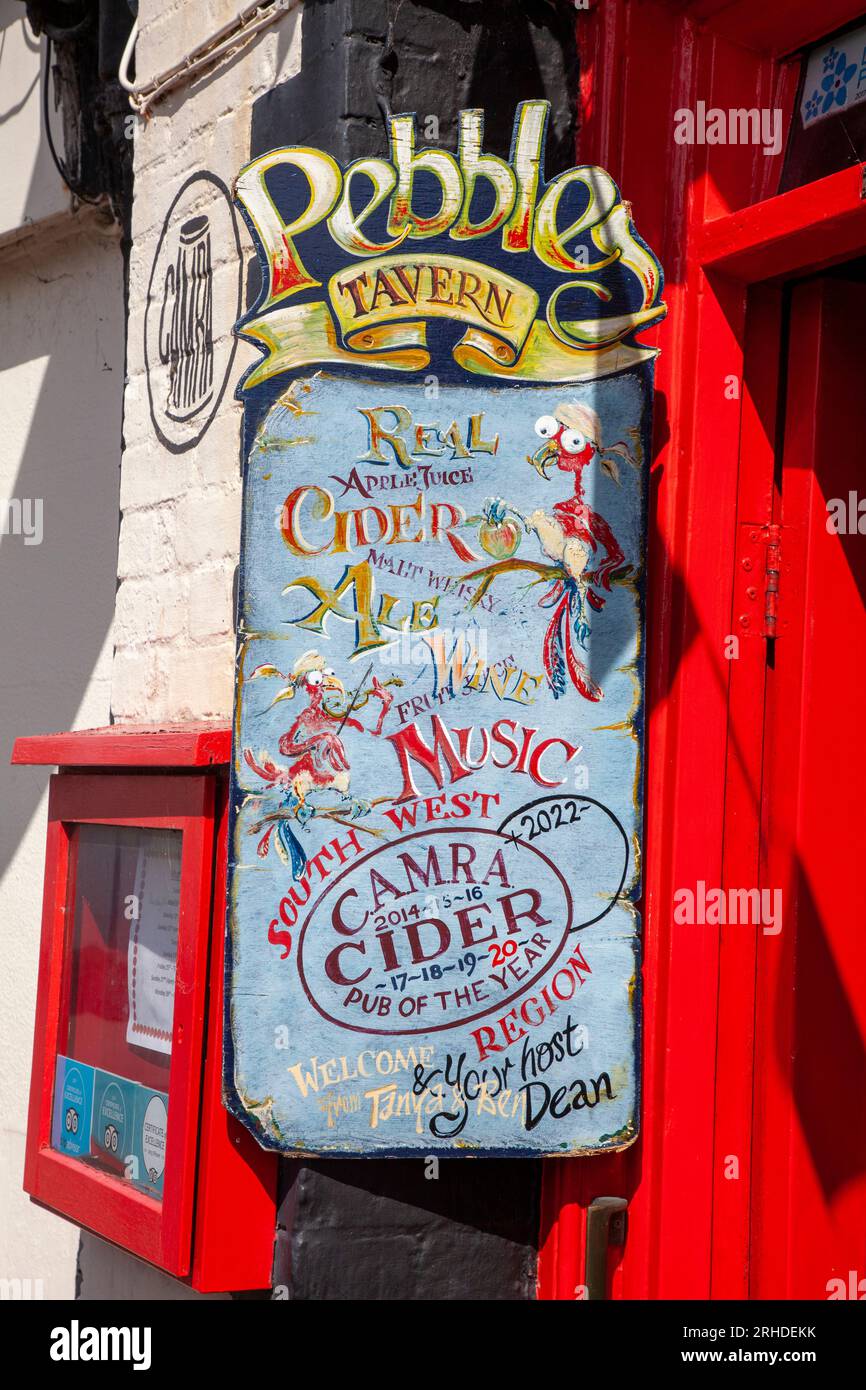 Pebbles
TAVERN
CAMRA
REAL
APPLE JUICE
CIDER
MALT WHISKY
ALE
WINE
FRUIT JUICE
MUSIC
SOUTH WEST
+2022-
C.A.M.R.A.
2014~15~16
CIDER
~17~18~19~20~
PUB OF THE YEAR
REGION
WELCOME
& your host
from Tanya & Ben
Dean
CERTIFICATE of EXCELLENCE
alamy
Image ID: 2RHDEKK
www.alamy.com